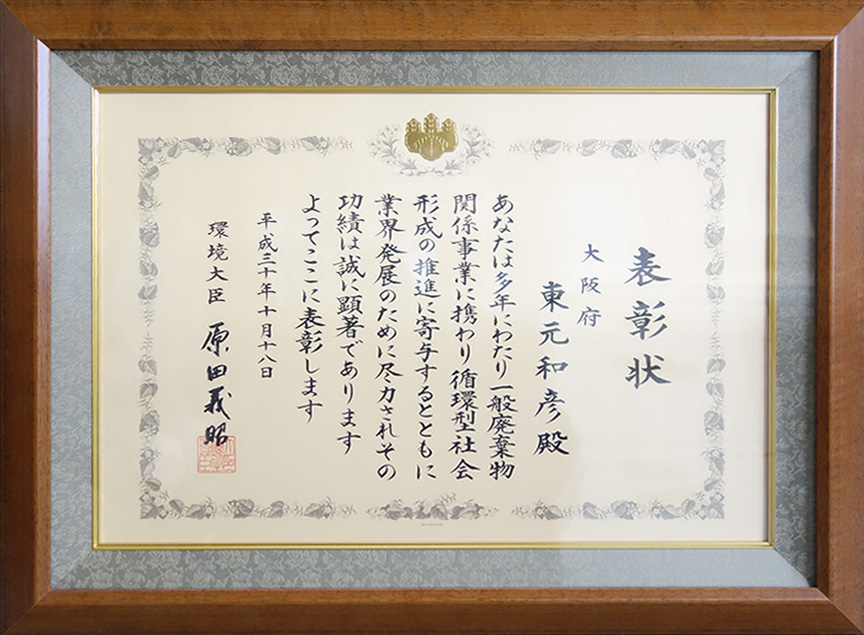 表彰状
大阪府
東元和彦殿
あなたは多年にわたり一般廃棄物
関係事業に携わり循環型社会
形成の推進に寄与するとともに
業界発展のために尽力されその
功績は誠に顕著であります
よってここに表彰します
平成三十年十月十八日
環境大臣 原田義昭